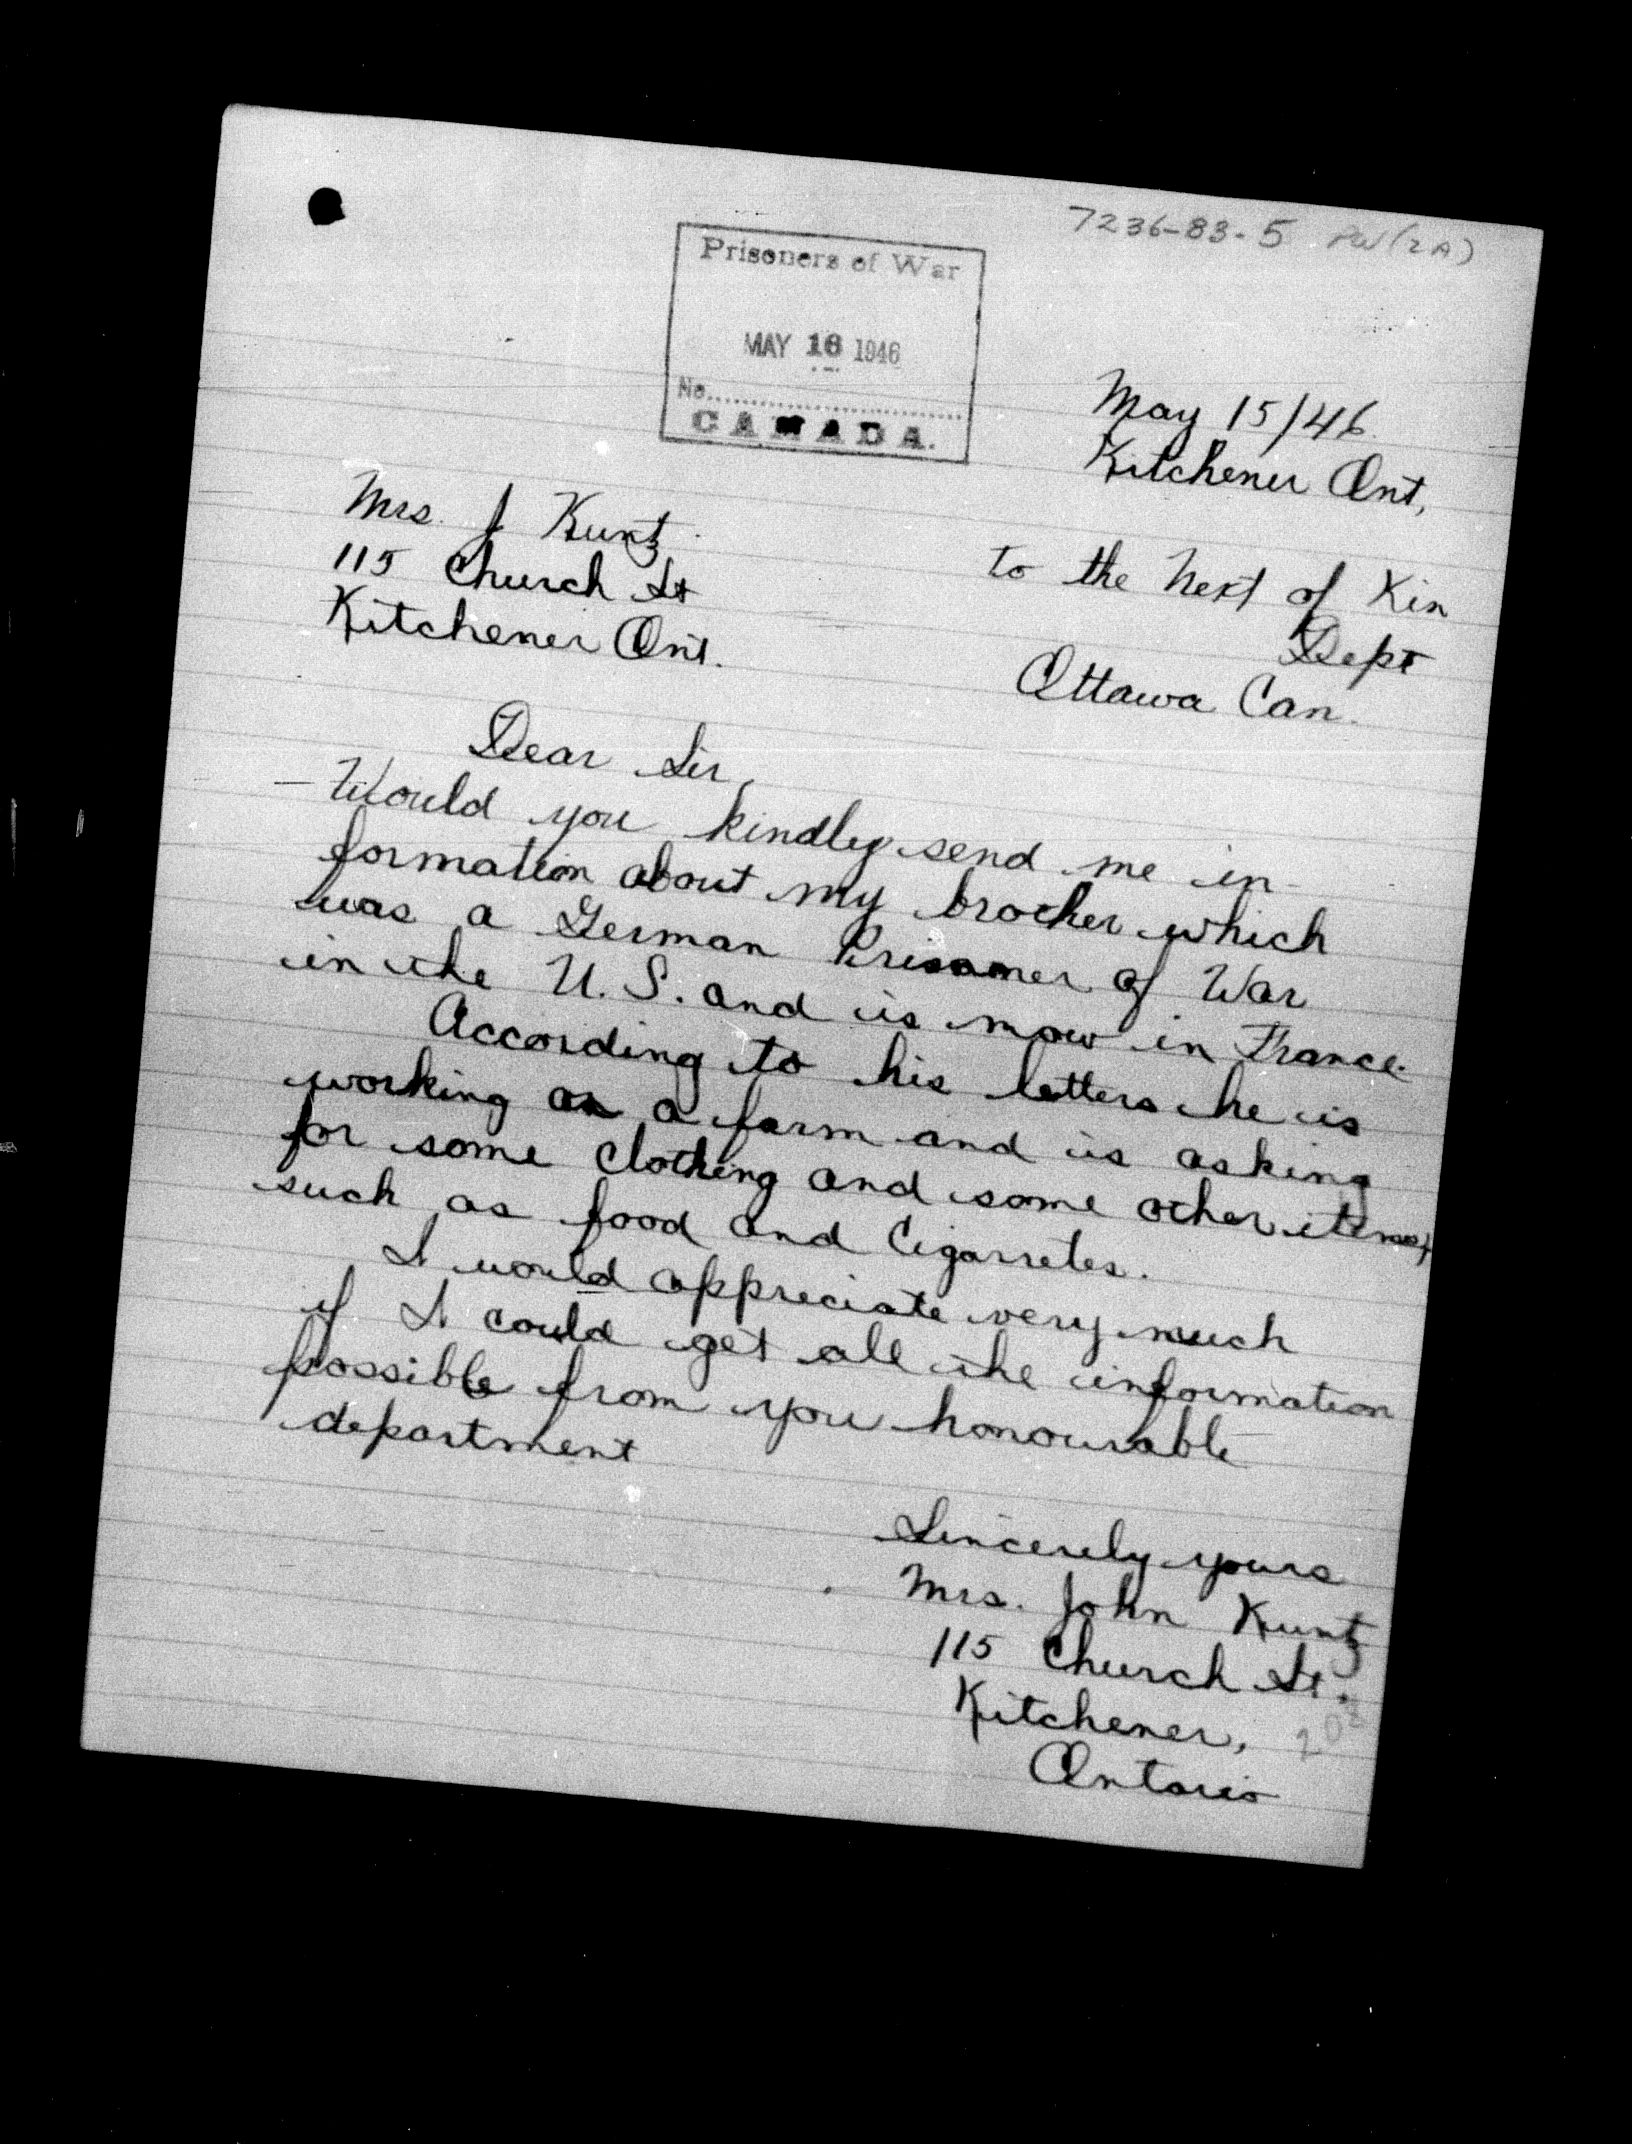 7236-83-5 PW(2A)
Prisoners of War
MAY 16 1946
No.
CANADA.
May 15/46
Kitchener Ont,
Mrs. J Kuntz
115 Church St
Kitchener Ont.
to the Next of Kin
Dept
Ottawa Can.
Dear Sir,
Would you kindly send me in-
formation about my brother which
was a German Prisoner of War
in the U.S. and is now in France.
According to his letters he is
working on a farm and is asking
for some clothing and some other items,
such as food and Cigarretes.
I would appreciate very much
if I could get all the information
possible from you honourable
department
Sincerely yours
Mrs. John Kuntz
115 Church St.
Kitchener,
Ontario